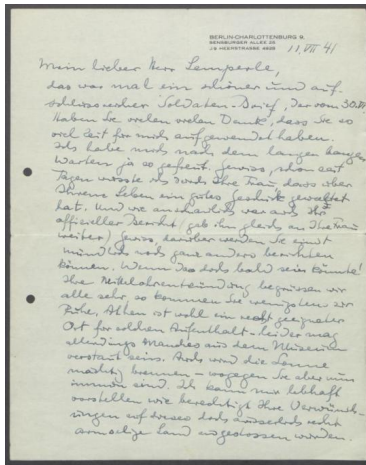 BERLIN-CHARLOTTENBURG 9,
SENSBURGER ALLEE 26
J 9 HEERSTRASSE 4629
11. VII 41
Mein lieber Herr Lemperle,
das war mal ein schöner und auf-
schlussreicher Soldaten-Brief, der vom 30.VI.
Haben Sie vielen vielen Dank, dass Sie so
viel Zeit für mich aufgewendet haben.
Ich habe mich nach dem langen bangen
Warten ja so gefreut. Gewiss, schon seit
Tagen wusste ich durch Ihre Frau, dass über
Ihrem Leben ein gutes Geschick gewaltet
hat. Und wie anschaulich war auch Ihr
offizieller Bericht (gab ihn gleich an Ihre Frau
weiter) Gewiss, darüber werden Sie einst
mündlich noch ganz anders berichten
können. Wenn das doch bald sein könnte!
Ihre Mittelohrentzündung begrüssen wir
alle sehr, so kommen Sie wenigstens zur
Ruhe. Athen ist wohl ein recht geeigneter
Ort für solchen Aufenthalt - leider mag
allerdings manches aus dem Museum
verstaut sein. Auch wird die Sonne
mächtig brennen - wogegen Sie aber nun
immun sind. Ich kann mir lebhaft
vorstellen wie berechtigt Ihre Verwünsch-
ungen auf dieses doch äusserlich recht
armselige Land ausgestossen wurden.